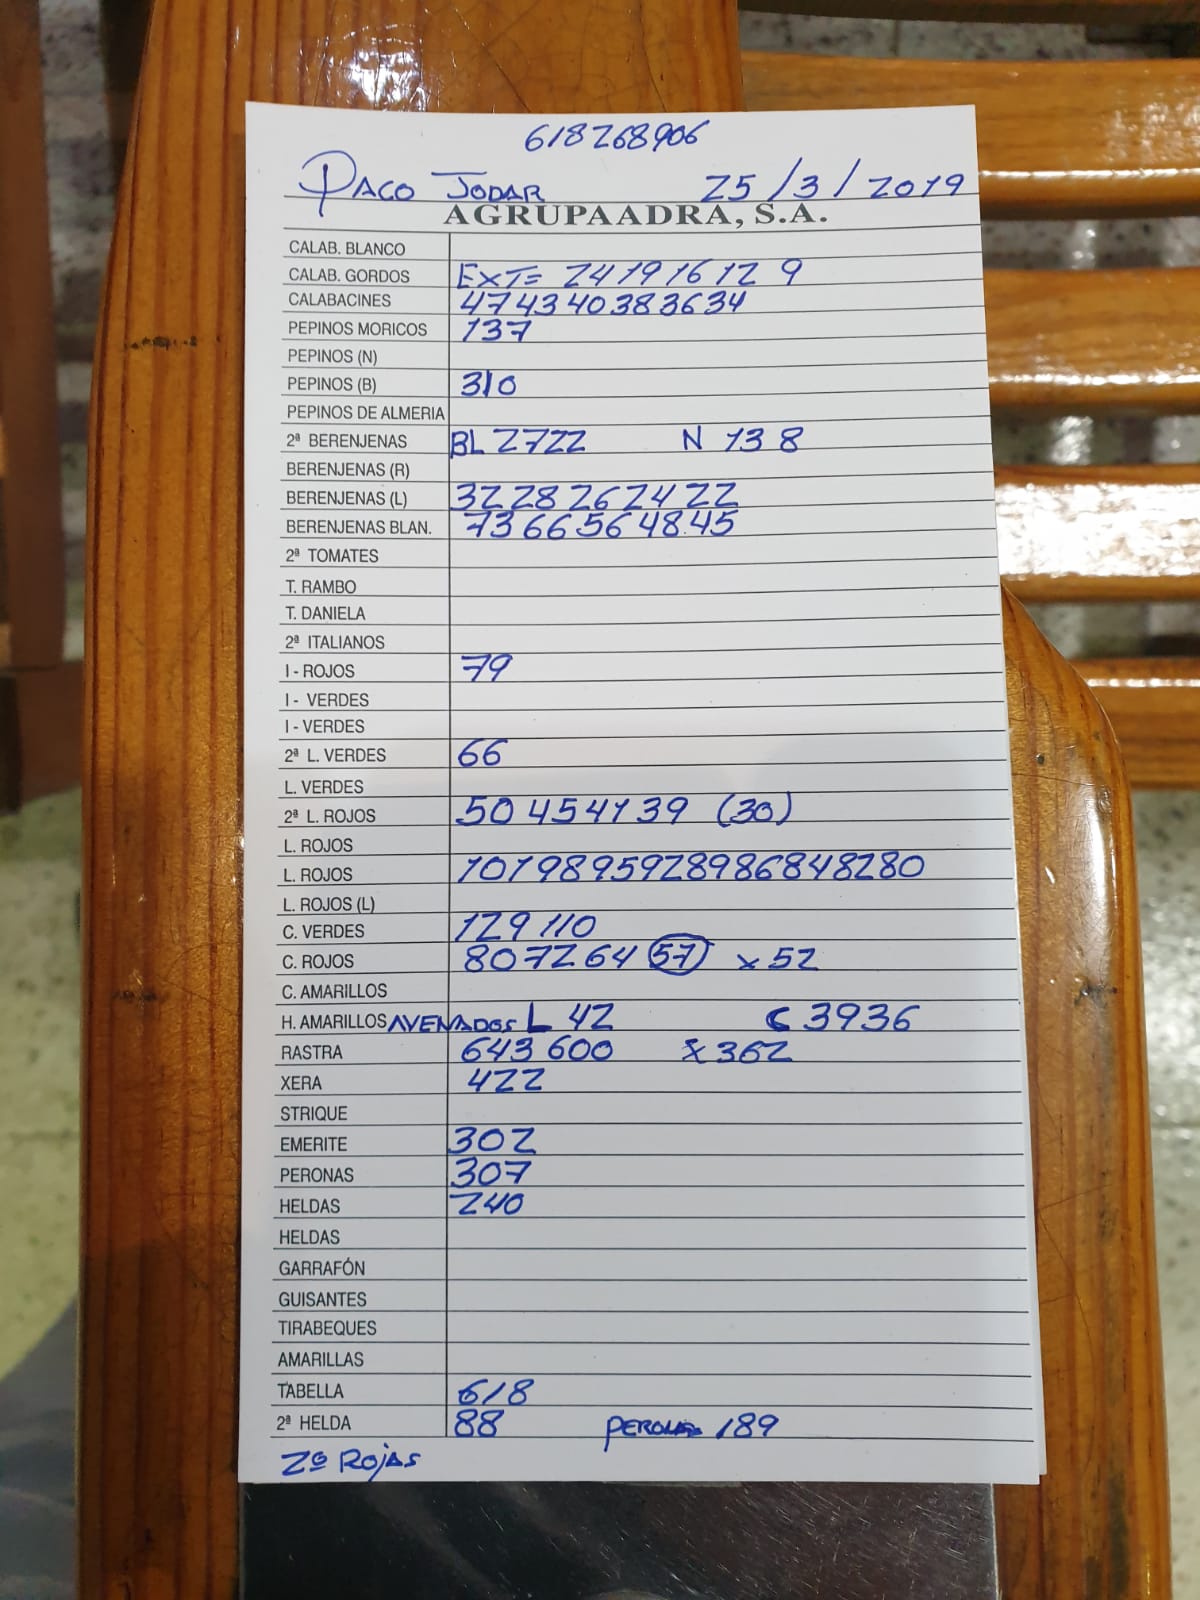 618268906
PACO JODAR 25/3/2019
AGRUPAADRA, S.A.
CALAB. BLANCO
CALAB. GORDOS EXT= 24 19 16 12 9
CALABACINES 47 43 40 38 36 34
PEPINOS MORICOS 137
PEPINOS (N)
PEPINOS (B) 310
PEPINOS DE ALMERIA
2ª BERENJENAS BL 27 22 N 138
BERENJENAS (R)
BERENJENAS (L) 32 28 26 24 22
BERENJENAS BLAN. 73 66 56 48 45
2ª TOMATES
T. RAMBO
T. DANIELA
2ª ITALIANOS
I - ROJOS 79
I - VERDES
I - VERDES
2ª L. VERDES 66
L. VERDES
2ª L. ROJOS 50 45 41 39 (30)
L. ROJOS
L. ROJOS 101 98 95 92 89 86 84 82 80
L. ROJOS (L)
C. VERDES 129 110
C. ROJOS 80 72 64 57 x 52
C. AMARILLOS
H. AMARILLOS AVENADOS L 42 C 39 36
RASTRA 643 600 x 362
XERA 422
STRIQUE
EMERITE 302
PERONAS 307
HELDAS 240
HELDAS
GARRAFÓN
GUISANTES
TIRABEQUES
AMARILLAS
TABELLA 618
2ª HELDA 88 189
2º ROJAS